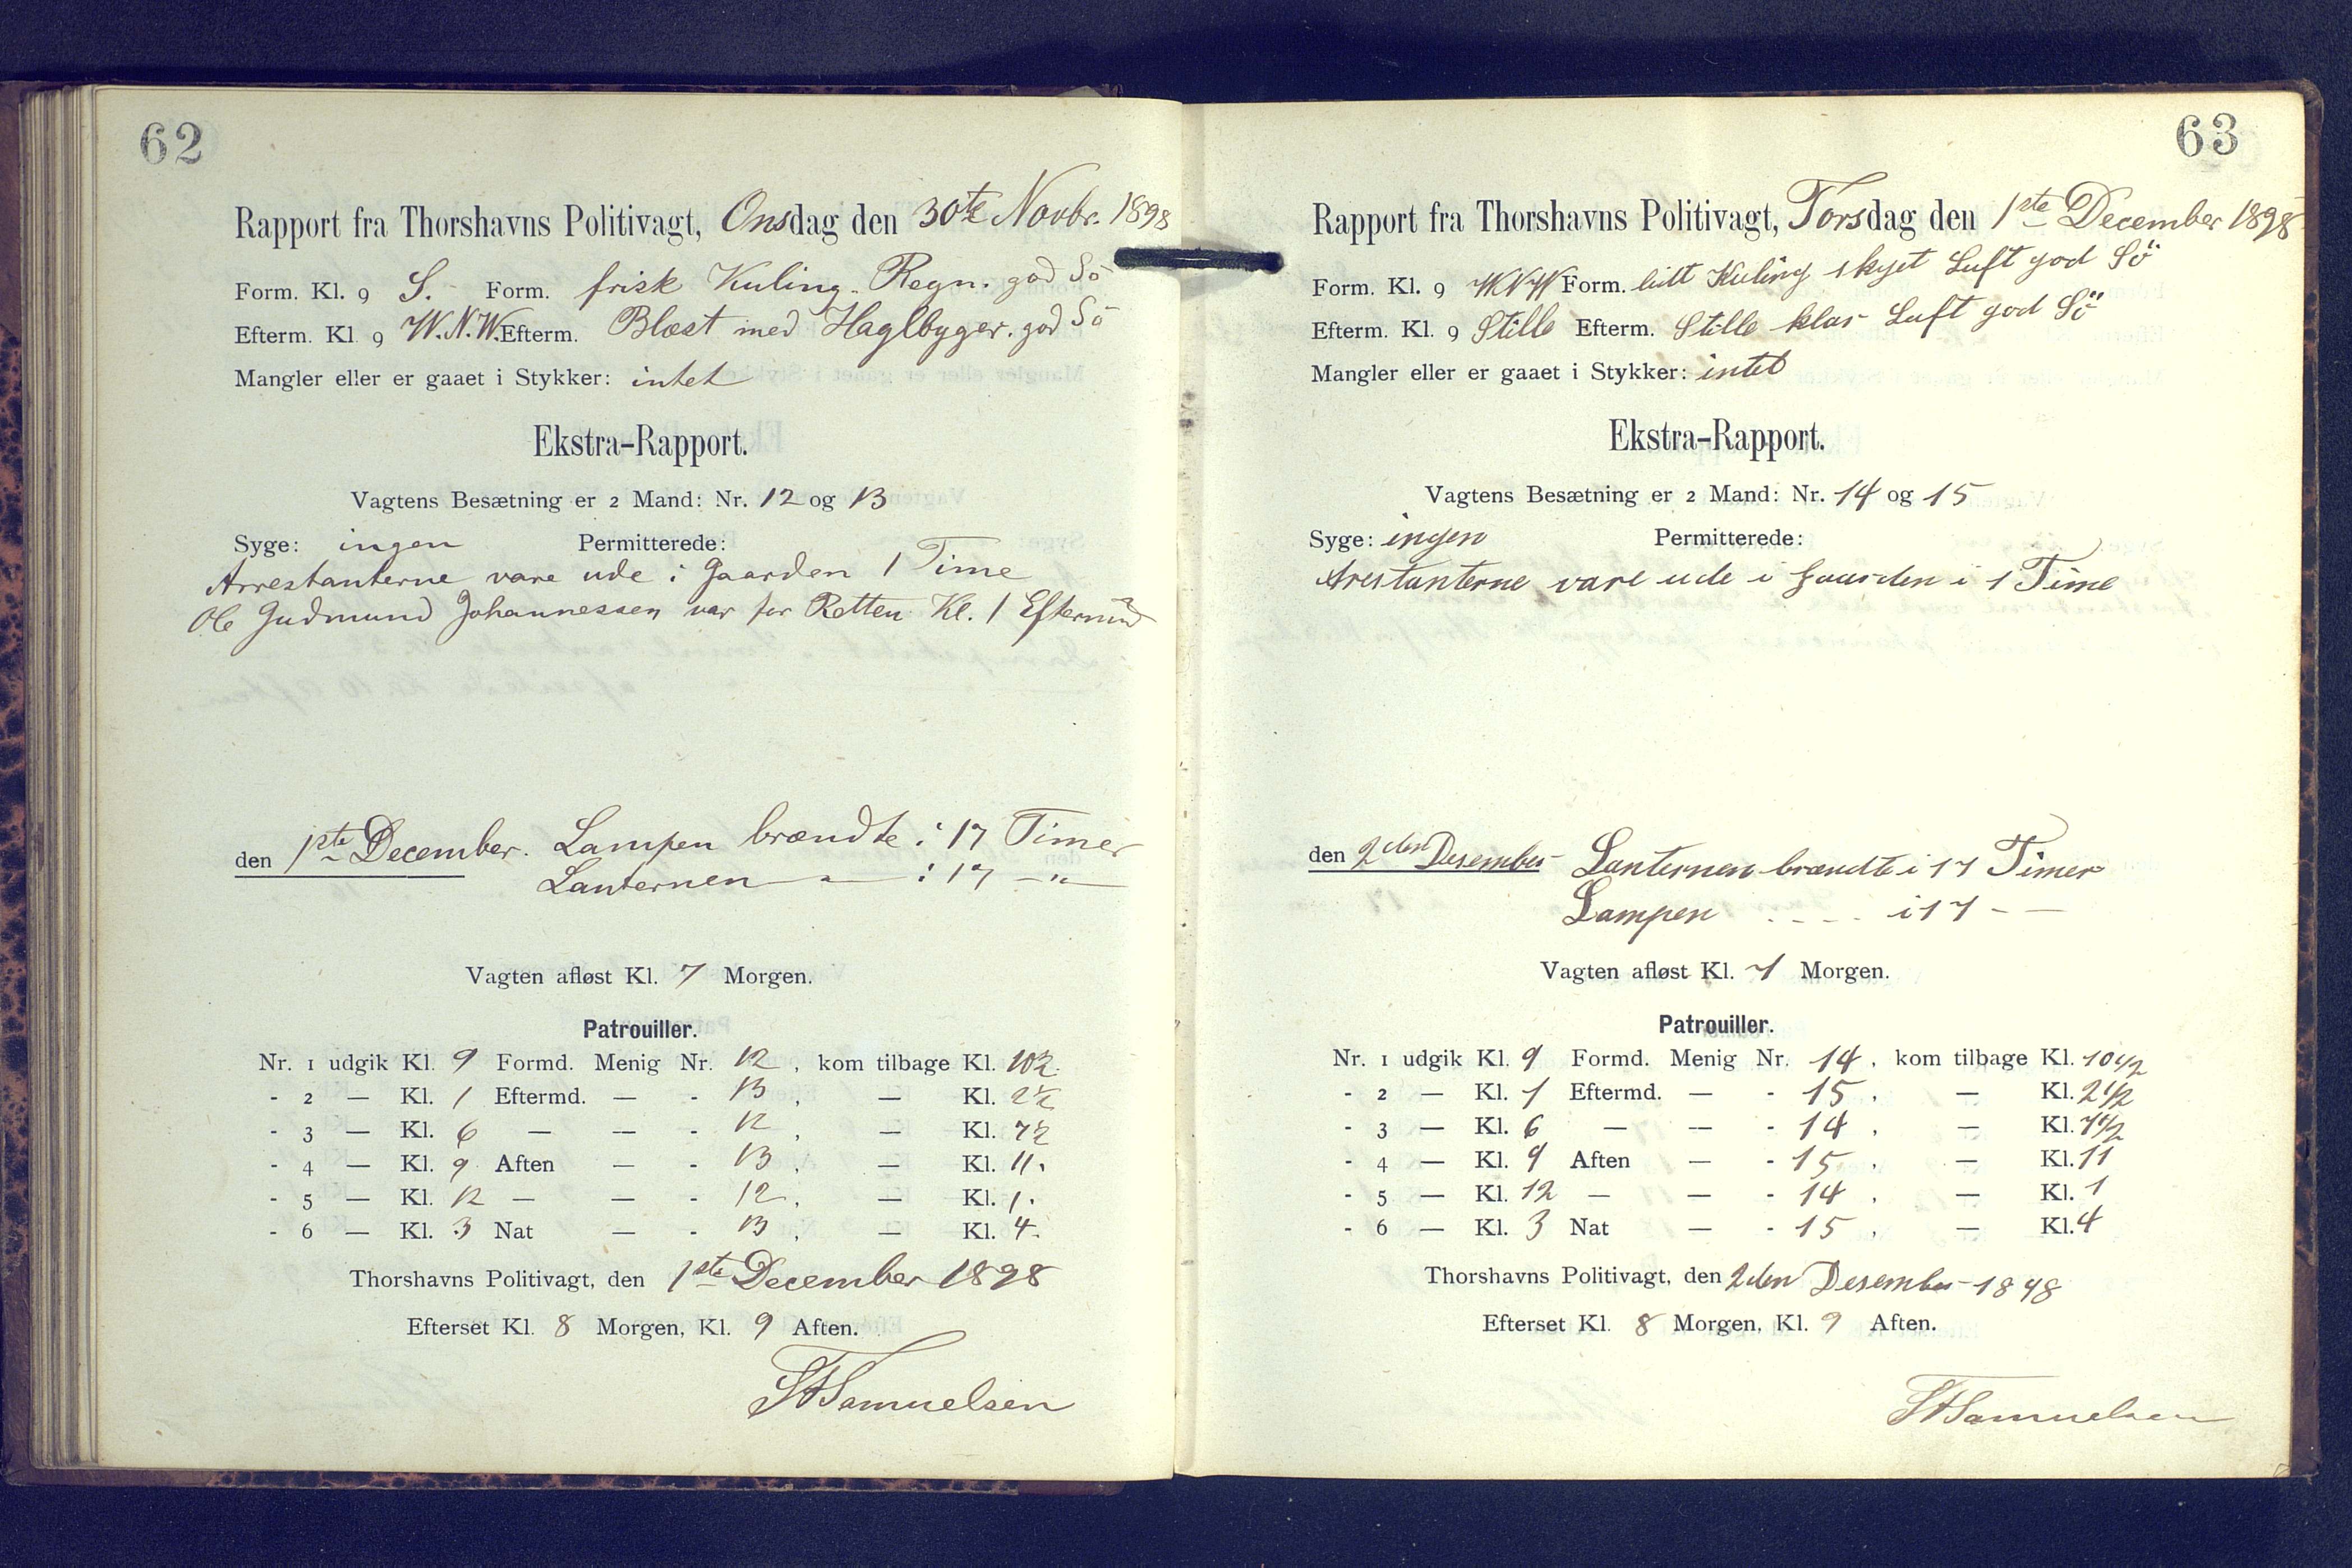 62
Rapport fra Thorshavns Politivagt, Onsdag den 30te Novbr. 1898
Form. Kl. 9 S. Form. frisk Kuling. Regn. god Sö
Efterm. Kl. 9 W.N.W. Efterm. Blæst med Haglbyger. god Sö
Mangler eller er gaaet i Stykker: intet
Ekstra-Rapport.
Vagtens Besætning er 2 Mand: Nr. 12 og 13
Syge: ingen Permitterede:
Arrestanterne vare ude i Gaarden 1 Time
Ole Gudmund Johannessen var for Retten Kl. 1 Eftermd
den 1ste December. Lampen brændte i 17 Timer
Lanternen — " — i 17 — " —
Vagten afløst Kl. 7 Morgen.
Patrouiller.
Nr. 1 udgik Kl. 9 Formd. Menig Nr. 12, kom tilbage Kl. 10½.
- 2 — Kl. 1 Eftermd. — - 13, — Kl. 2½
- 3 — Kl. 6 — — - 12, — Kl. 7½
- 4 — Kl. 9 Aften — - 13, — Kl. 11.
- 5 — Kl. 12 — — - 12, — Kl. 1.
- 6 — Kl. 3 Nat — - 13, — Kl. 4.
Thorshavns Politivagt, den 1ste December 1898
Efterset Kl. 8 Morgen, Kl. 9 Aften.
Samuelsen
63
Rapport fra Thorshavns Politivagt, Torsdag den 1ste December 1898
Form. Kl. 9 WNW Form. lidt Kuling skyet Luft god Sö
Efterm. Kl. 9 Stille Efterm. Stille klar Luft god Sö
Mangler eller er gaaet i Stykker: intet
Ekstra-Rapport.
Vagtens Besætning er 2 Mand: Nr. 14 og 15
Syge: ingen Permitterede:
Arestanterne vare ude i Gaarden i 1 Time
den 2den Desember Lanternen brændte i 17 Timer
Lampen - - - - i 17 - —
Vagten afløst Kl. 7 Morgen.
Patrouiller.
Nr. 1 udgik Kl. 9 Formd. Menig Nr. 14, kom tilbage Kl. 10 1/2
- 2 — Kl. 1 Eftermd. — - 15, — Kl. 2 1/2
- 3 — Kl. 6 — — - 14, — Kl. 7 1/2
- 4 — Kl. 9 Aften — - 15, — Kl. 11
- 5 — Kl. 12 — — - 14, — Kl. 1
- 6 — Kl. 3 Nat — - 15, — Kl. 4
Thorshavns Politivagt, den 2den Desember 1898
Efterset Kl. 8 Morgen, Kl. 9 Aften.
Samuelsen